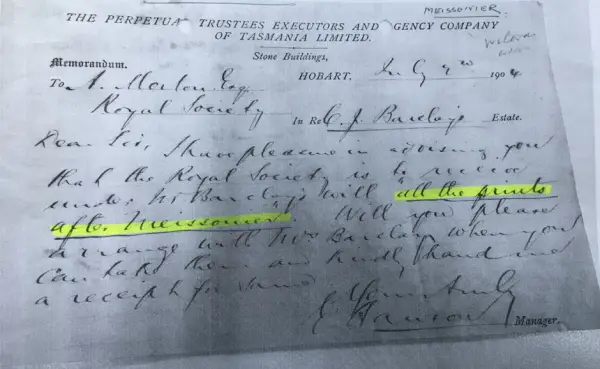 MEISSONIER.
THE PERPETUA TRUSTEES EXECUTORS AND GENCY COMPANY
OF TASMANIA LIMITED.
Stone Buildings,
Memorandum. HOBART, 1904.
To A. Morton Esq
Royal Society
In Re C. J. Barclay's Estate.
Dear Sir, I have pleasure in advising you
that the Royal Society is to receive
under Mr Barclay's will "all the prints
after Meissonier". Will you please
arrange with Mrs Barclay when you
can take them and kindly hand me
a receipt for same.
Yours truly
Manager.